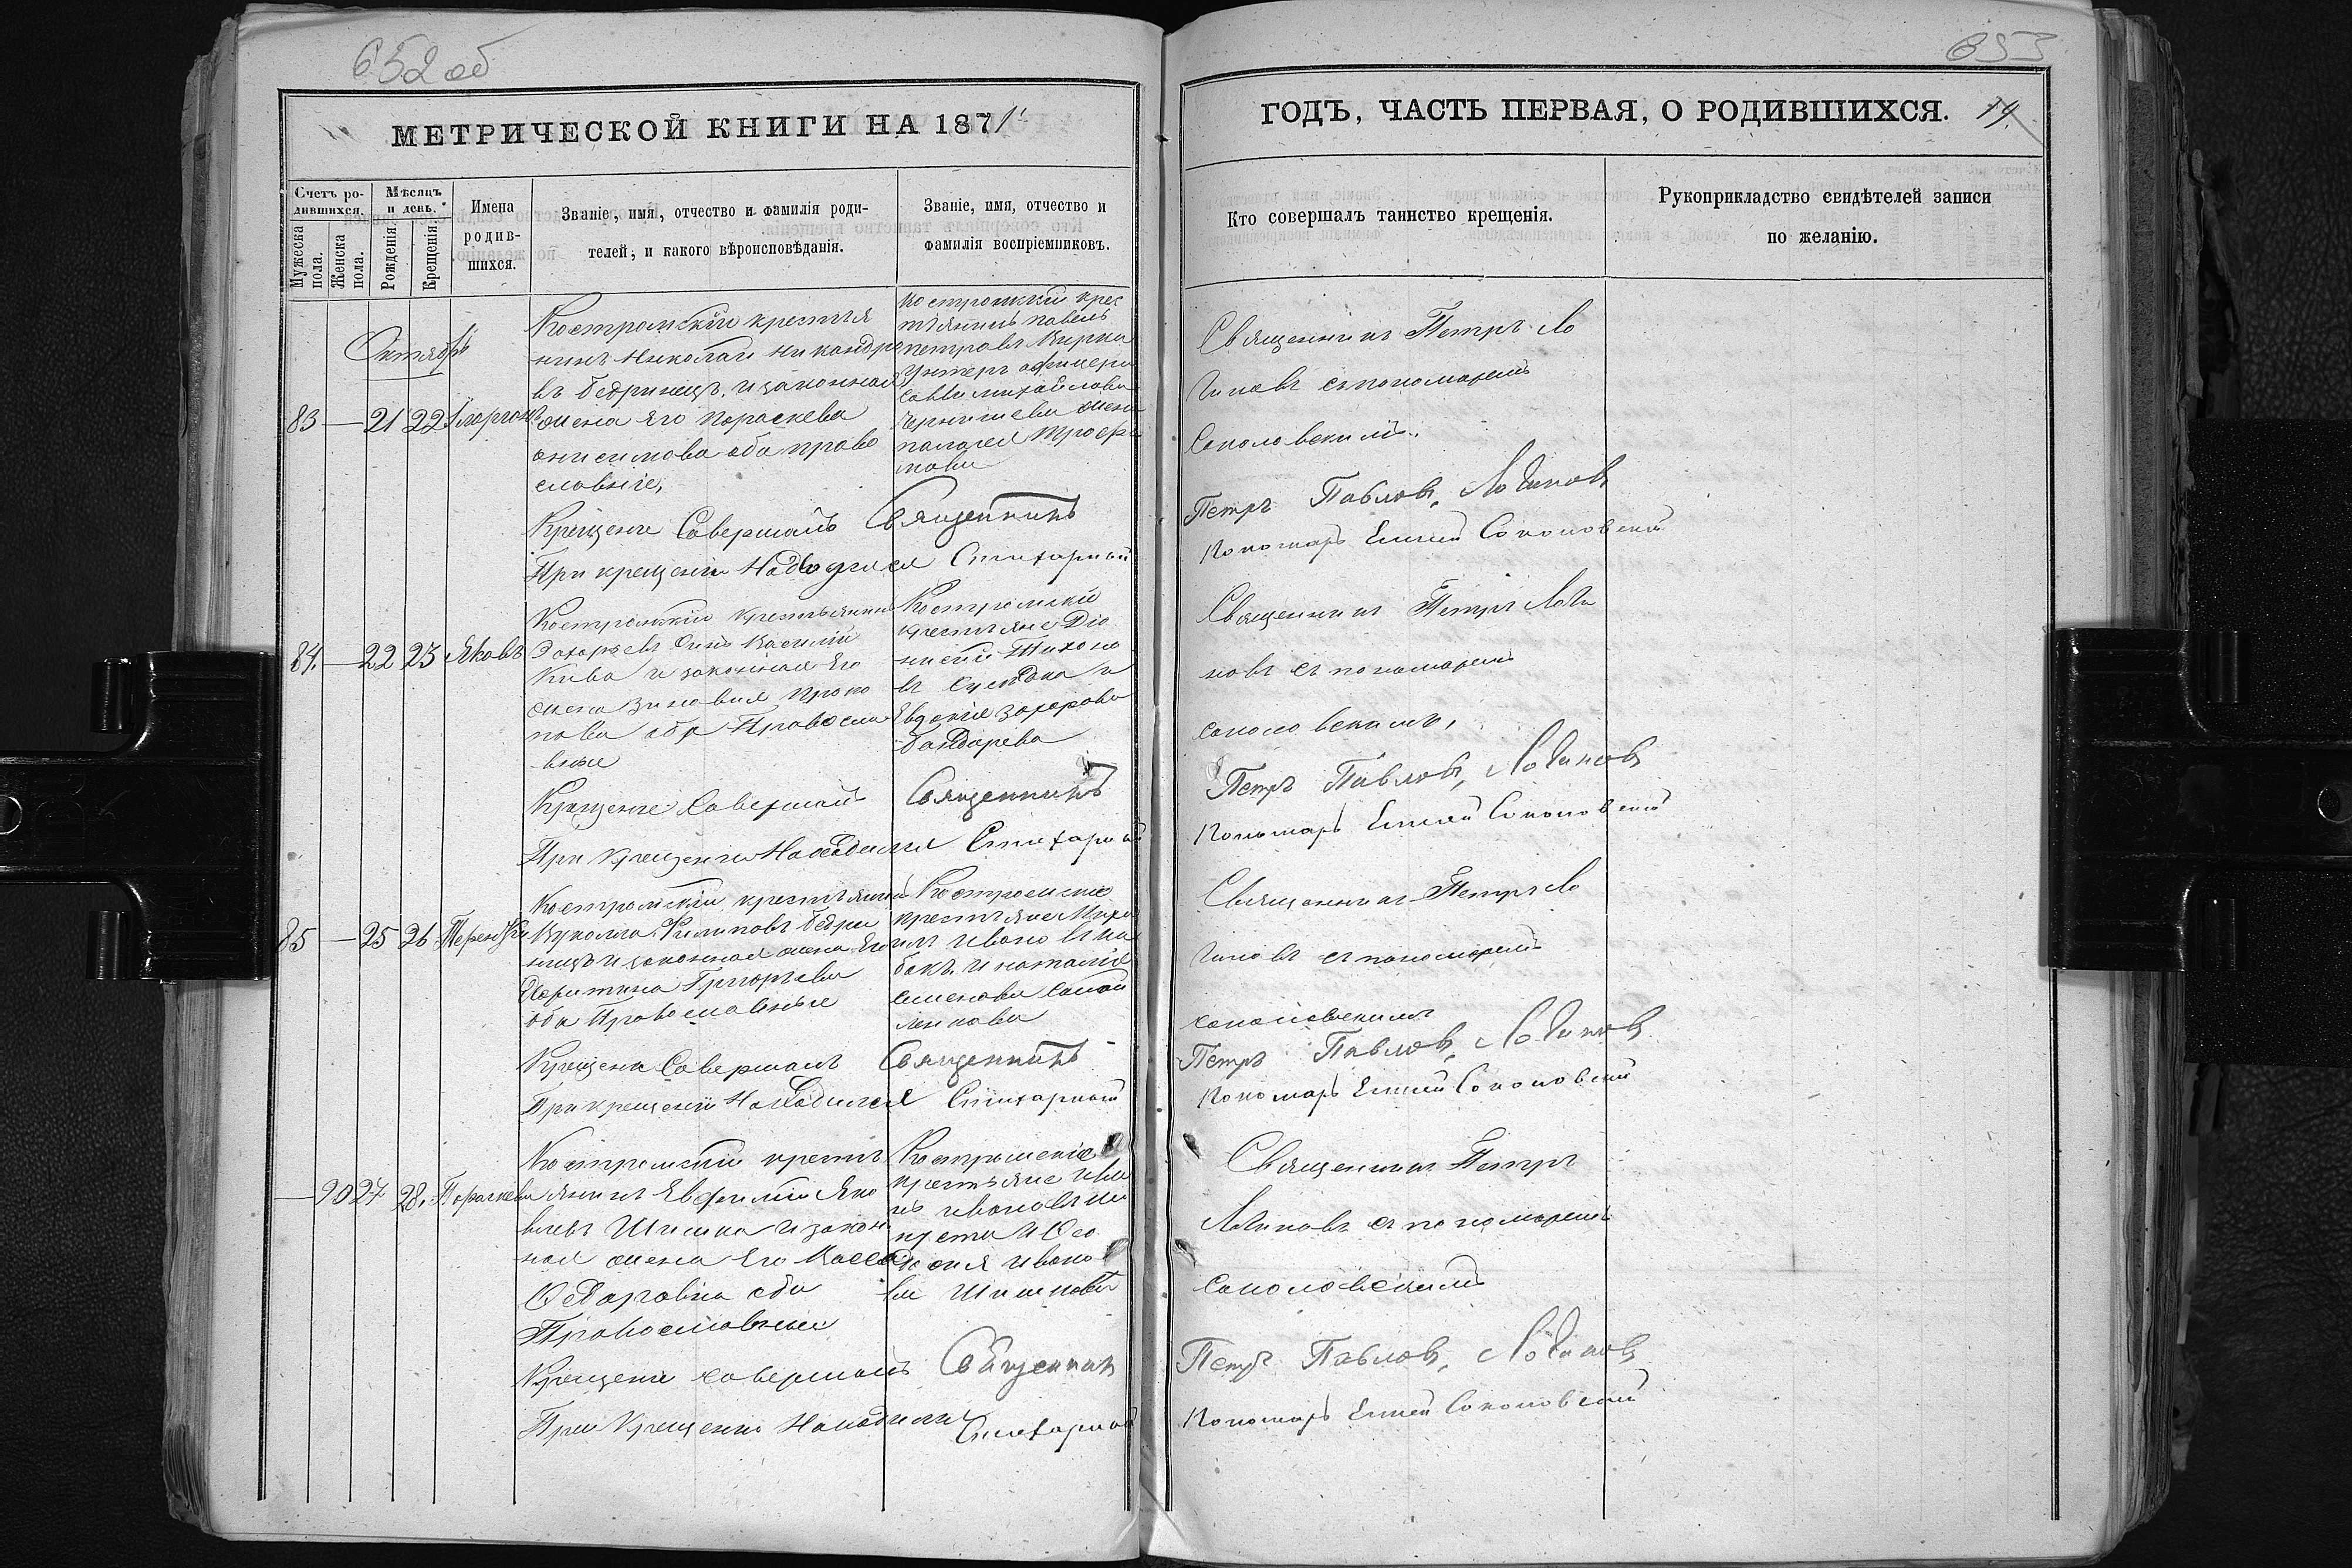 652 об
МЕТРИЧЕСКОЙ КНИГИ НА 1871
Счетъ ро-
дившихся.
Мужеска пола.
Женска пола.
Мѣсяцъ
и день.
Рожденія.
Крещенія.
Имена
родив-
шихся.
Званіе, имя, отчество и фамилія роди-
телей, и какого вѣроисповѣданія.
Званіе, имя, отчество и
фамилія воспріемниковъ.
Октябрь
83 — 21 22
Костромскій крестья
нинъ Николай Никандро
въ Бедринецъ, и законная
жена Его Пораскева
Онисимова оба право
славные,
крес
тьянинъ Павелъ
Петровъ
Унтеръ офицера
Саввы Михайлова
жена
Трофи
мова
Крещение Совершалъ Священникъ
При крещении Находился Стихарный
84. — 22 23 Яковъ
Костромский крестьянинъ
Захарьевъ Сынъ Василий
Кива и законная Его
жена Зиновия Проко
пова оба Правосла
вные
Костромские
крестьяне Дио
нисий Тихоно
въ и
Евдокия Захарова
Бондарева
Крещение Совершалъ Священникъ
При крещении Находился Стихарный
85 — 25 26 Терентий
Костромский крестьянинъ
Филиповъ Бедри
нецъ и законная жена Его
Харитина Григорьева
оба Православные
Костромские
крестьяне Миха
илъ Ивано
и Наталия
Семенова Самой
ленкова
Крещение Совершалъ Священникъ
При крещении Находился Стихарный
— 90 27 28. Пораскева
Костромский кресть
янинъ Евфимий Яко
влевъ Шишка и закон
ная жена Его Васса
Федоровна оба
Православные
Костромские
крестьяне Ива
нъ Ивановъ
и Фео
досия Ивано
ва Шишкова
Крещение совершалъ Священник
При Крещении Находился
Стихарный
653
ГОДЪ, ЧАСТЬ ПЕРВАЯ, О РОДИВШИХСЯ.
Кто совершалъ таинство крещенія.
Рукоприкладство свидѣтелей записи
по желанію.
Священникъ Петръ Ло
гиновъ съ пономаремъ
Соколовскимъ.
Петръ Павловъ, Логиновъ
Пономарь Соколовский
Священникъ Петръ Логи
новъ съ пономаремъ
Соколовскимъ,
Петръ Павловъ, Логиновъ
Пономарь Соколовский
Священникъ Петръ Ло
гиновъ съ пономаремъ
Соколовскимъ
Петръ Павловъ, Логиновъ
Пономарь Соколовский
Священникъ Петръ
Логиновъ съ пономаремъ
Соколовскимъ
Петръ Павловъ, Логиновъ
Пономарь Соколовский